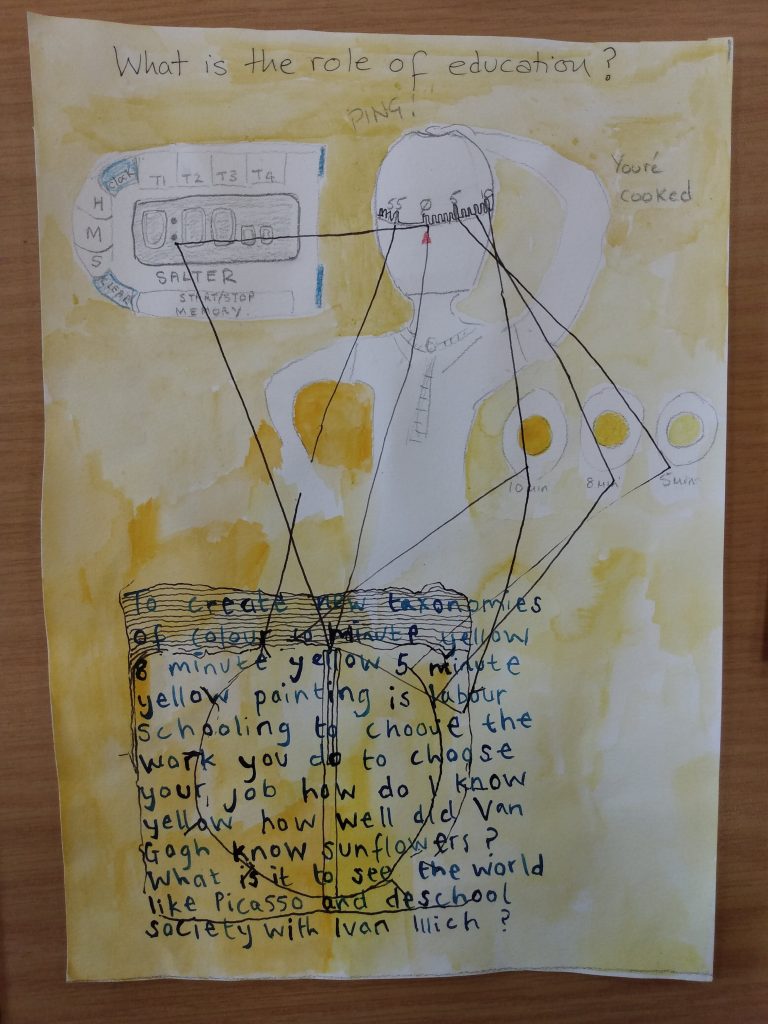 What is the role of education?
PING!
You're
cooked
Clock
T1 T2 T3 T4
H
M
S
CLEAR
SALTER
START/STOP
MEMORY.
55 0 5
10 min 8 min 5 min
To create new taxonomies
of colour 10 minute yellow
8 minute yellow 5 minute
yellow painting is labour
schooling to choose the
work you do to choose
your job how do I know
yellow how well did Van
Gogh know sunflowers?
What is it to see the world
like Picasso and deschool
society with Ivan Illich?